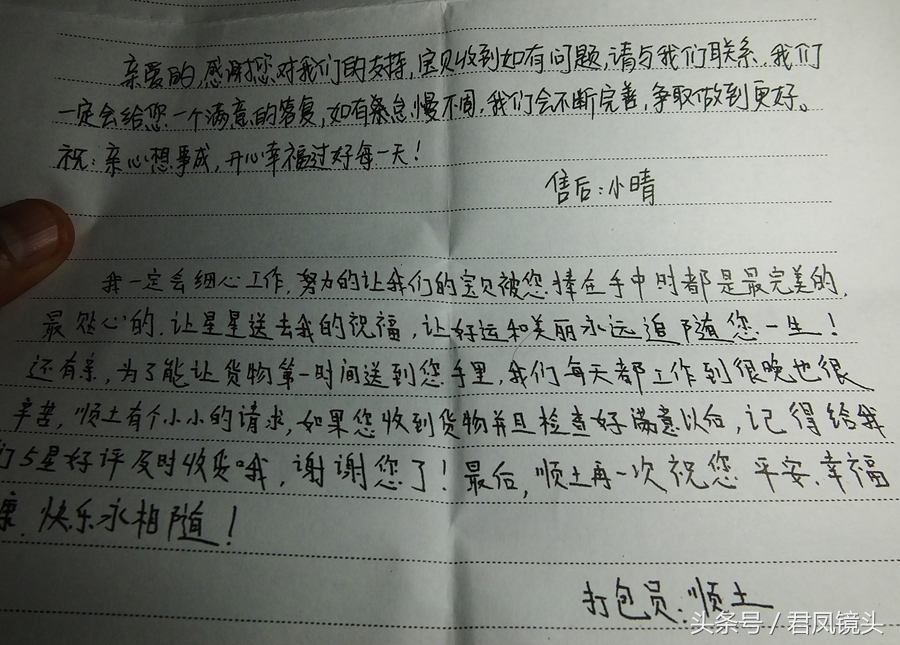 亲爱的,感谢您对我们的支持,宝贝收到如有问题,请与我们联系.我们
一定会给您一个满意的答复,如有怠慢不周,我们会不断完善,争取做到更好。
祝:亲心想事成,开心幸福过好每一天!
售后:小晴
我一定会细心工作,努力的让我们的宝贝被您捧在手中时都是最完美的,
最贴心的.让星星送去我的祝福,让好运和美丽永远追随您一生!
还有亲,为了能让货物第一时间送到您手里,我们每天都工作到很晚也很
辛苦,顺土有个小小的请求,如果您收到货物并且检查好满意以后,记得给我
们5星好评及时收货哦,谢谢您了!最后,顺土再一次祝您 平安.幸福
康.快乐永相随!
打包员:顺土
头条号/君凤镜头